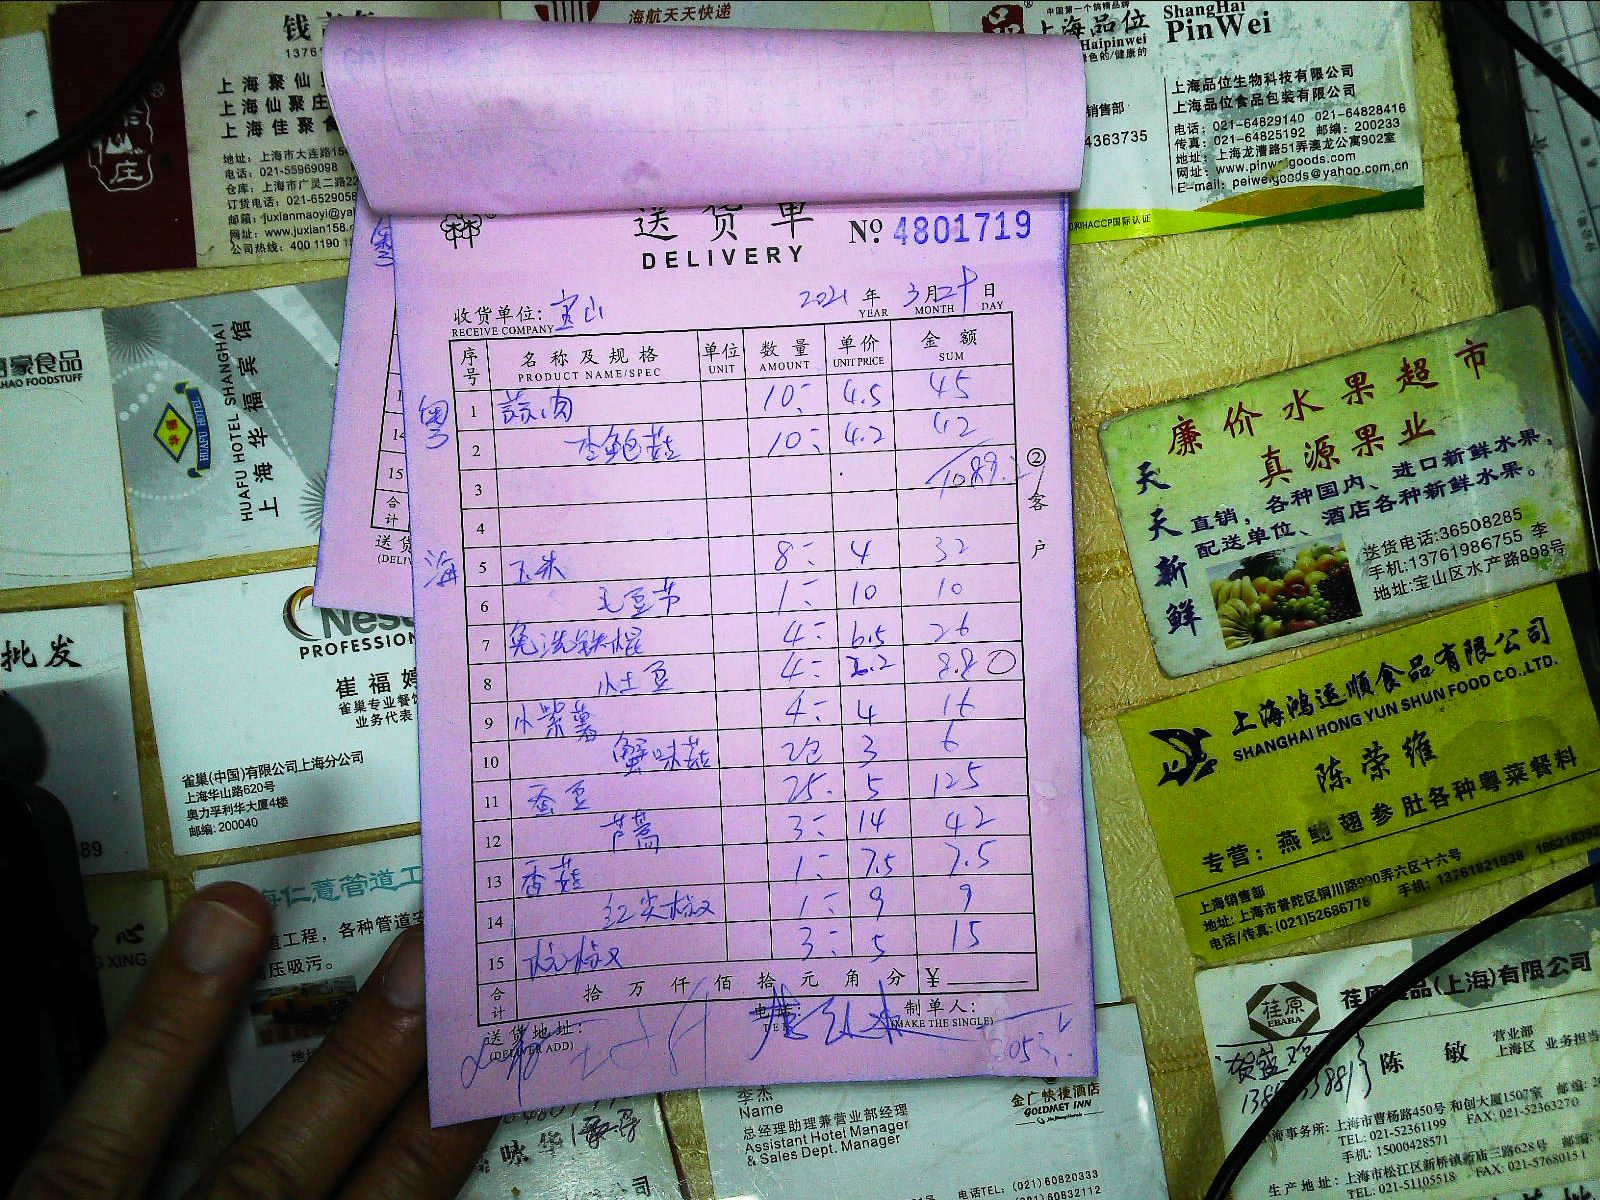 海航天天快递
上海聚仙
上海仙聚庄
上海佳聚食
地址：上海市大连路
电话：021-55969098
仓库：上海市广灵二路22
订货电话：021-6529056
邮箱：juxianmaoyi@ya
网址：www.juxian158.
公司热线：400 1190
中国第一个锦精品牌
上海品位
Haipinwei
ShangHai
PinWei
上海品位生物科技有限公司
上海品位食品包装有限公司
销售部
4363735
电话：021-64829140 021-64828416
传真：021-64825192 邮编：200233
地址：上海龙漕路51弄澳龙公寓902室
网址：www.pinweigoods.com
E-mail：peiwei.goods@yahoo.com.cn
HACCP国际认证
送货单
DELIVERY
No. 4801719
收货单位：宝山
RECEIVE COMPANY
2021 年 3月24日
YEAR MONTH DAY
序号 名称及规格 单位 数量 单价 金额
PRODUCT NAME/SPEC UNIT AMOUNT UNIT PRICE SUM
粤
1 蒜肉 10 4.5 45
2 杏鲍菇 10 4.2 42
3
4
海
5 玉米 8 4 32
6 毛豆节 1 10 10
7 免洗铁棍 4 6.5 26
8 小土豆 4 2.2 8.8
9 小紫薯 4 4 16
10 蟹味菇 2包 3 6
11 蚕豆 25 5 125
12 芦蒿 3 14 42
13 香菇 1 7.5 7.5
14 红尖椒 1 9 9
15 杭椒 3 5 15
合计 拾万仟佰拾元角分 ¥
送货地址：
(DELIVER ADD)
制单人：
(MAKE THE SINGLE)
②客户
豪食品
HAO FOODSTUFF
HUAFU HOTEL SHANGHAI
上海华福宾馆
HUAFU HOTEL
批发
Nes
PROFESSION
崔福婷
雀巢专业餐饮
业务代表
雀巢(中国)有限公司上海分公司
上海华山路620号
奥力孚利华大厦4楼
邮编：200040
海仁薏管道工
道工程，各种管道安
高压吸污。
廉价水果超市
真源果业
天天新鲜
直销，各种国内、进口新鲜水果，
配送单位、酒店各种新鲜水果。
送货电话：36508285
手机：13761986755 李
地址：宝山区水产路898号
上海鸿运顺食品有限公司
SHANGHAI HONG YUN SHUN FOOD CO.,LTD.
陈荣维
专营：燕鲍翅参肚各种粤菜餐料
上海销售部
地址：上海市普陀区铜川路990弄六区十六号
电话/传真：(021)52686778 手机：13761821938
荏原食品(上海)有限公司
荏原
EBARA
陈敏
营业部
上海区 业务担当
海事务所：上海市曹杨路450号和创大厦1507室
TEL：021-52361199 FAX：021-52363270
手机：15000428571
生产地址：上海市松江区新桥镇新庙三路628号
TEL：021-51105518 FAX：021-57680151
李杰
Name
总经理助理兼营业部经理
Assistant Hotel Manager
& Sales Dept. Manager
金广快捷酒店
GOLDMET INN
电话TEL：(021)60820333
(021)60832112